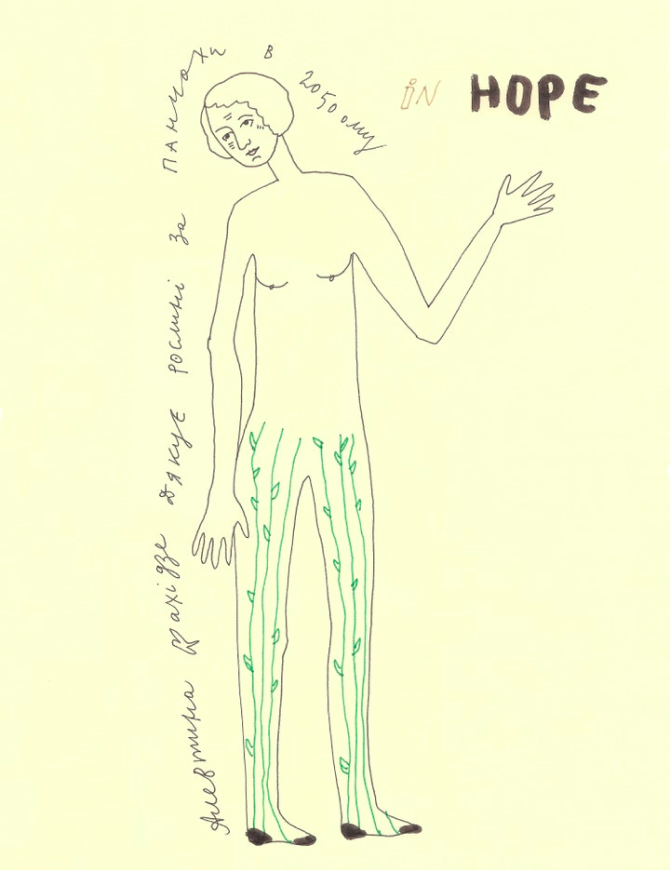 Алевтина Кахідзе дякує рослині за панчохи в 2050ому
iN HOPE